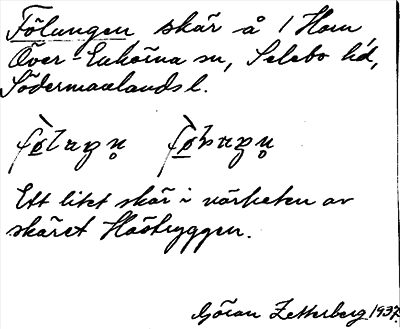 Fölungen skär å 1 Horn,
Över-Enhörna sn, Selebo hd,
Södermanlands l.
Ett litet skär i närheten av
skäret Hästryggen.
Göran Zetterberg 1937.